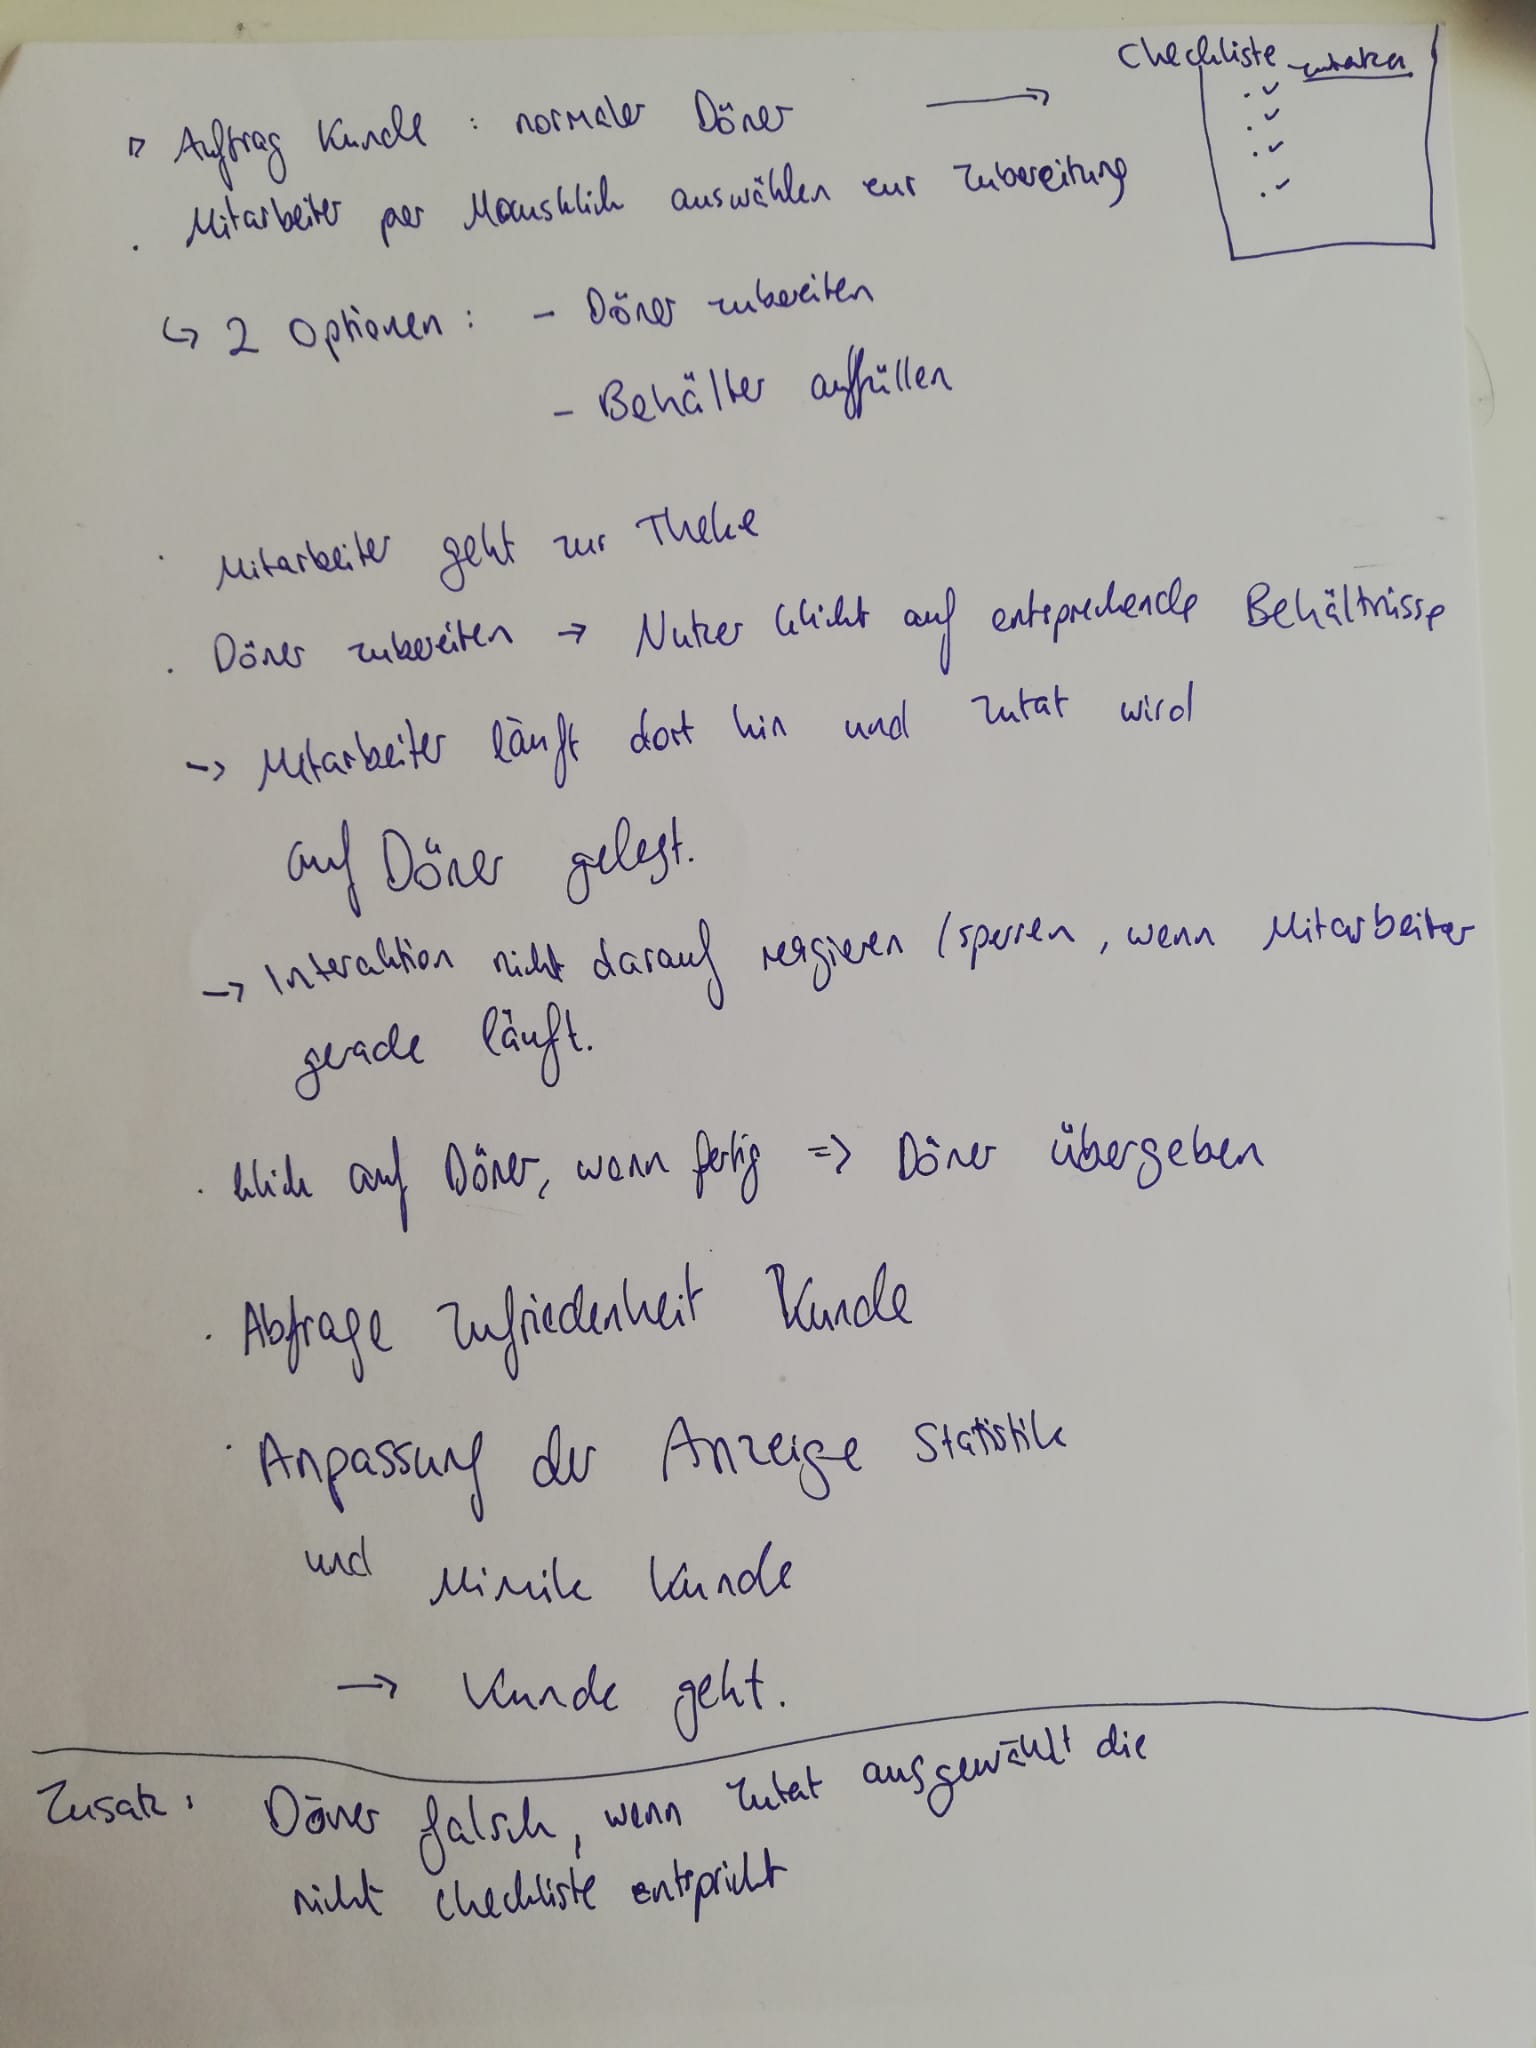 Auftrag Kunde : normaler Döner → Checkliste Zutaten
· Mitarbeiter per Mausklick auswählen zur Zubereitung
↳ 2 Optionen : - Döner zubereiten
- Behälter auffüllen
· Mitarbeiter geht zur Theke
· Döner zubereiten → Nutzer klickt auf entsprechende Behältnisse
-> Mitarbeiter läuft dort hin und Zutat wird
auf Döner gelegt.
-> Interaktion nicht darauf reagieren / sperren , wenn Mitarbeiter
gerade läuft.
· klick auf Döner, wenn fertig => Döner übergeben
· Abfrage Zufriedenheit Kunde
· Anpassung der Anzeige Statistik
und Mimik Kunde
→ Kunde geht.
Zusatz : Döner falsch, wenn Zutat ausgewählt die
nicht Checkliste entspricht